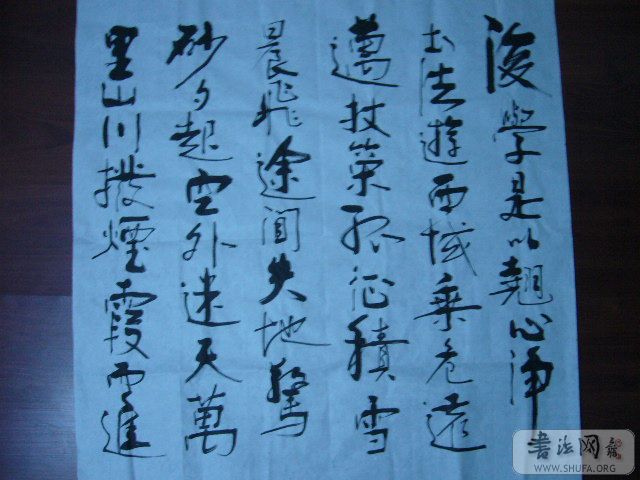 後學是以翹心淨
土法遊西域乘危遠
邁杖策孤征積雪
晨飛途間失地驚
砂夕起空外迷天萬
里山川撥煙霞而進
書法网
WWW.SHUFA.ORG